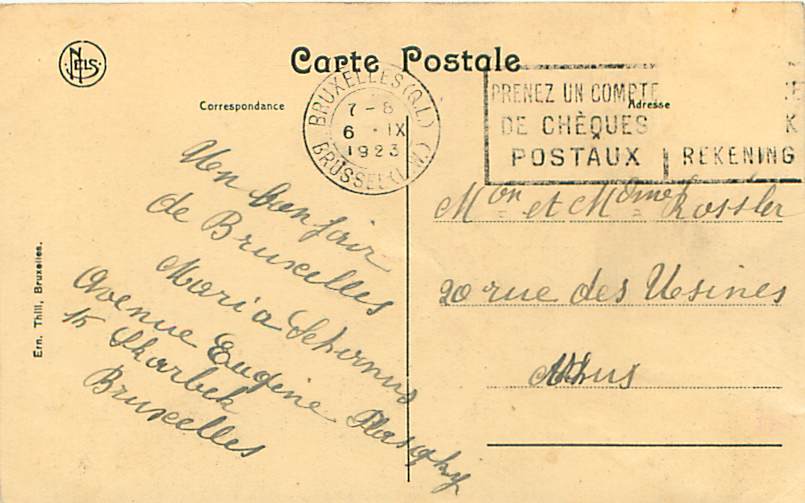 NELS
Carte Postale
Correspondance
Adresse
BRUXELLES (Q.L.)
7 - 8
6 . IX
1923
BRUSSEL (L.W.)
PRENEZ UN COMPTE
DE CHÈQUES
POSTAUX
K
REKENING
Un bonjour
de Bruxelles
Maria Schirnus
Avenue Eugène Plasghy
15 Sharbek
Bruxelles
Mon et Mdme Rossler
20 rue des Usines
Athus
Ern. Thill, Bruxelles.